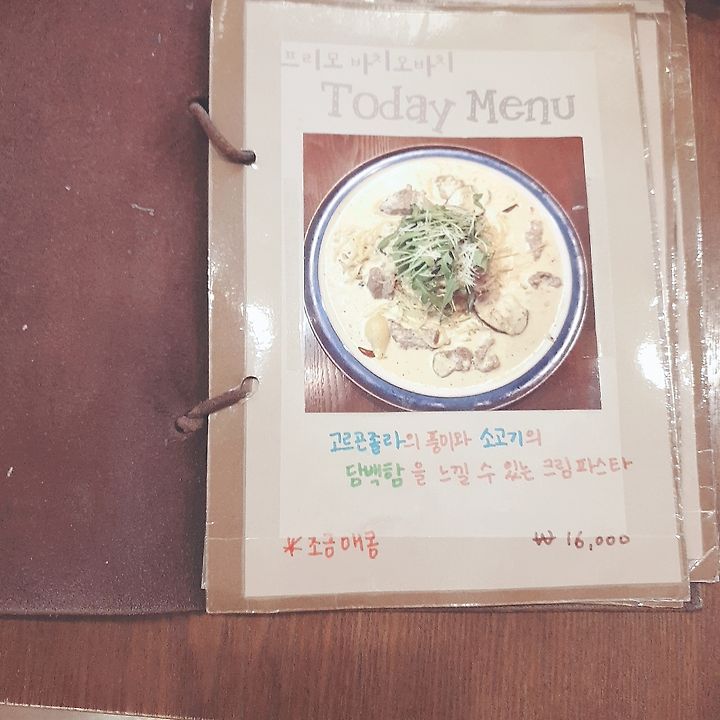 프리모 바치오바치
Today Menu
고르곤졸라의 풍미와 소고기의
담백함을 느낄 수 있는 크림파스타
*조금매콤
₩ 16,000